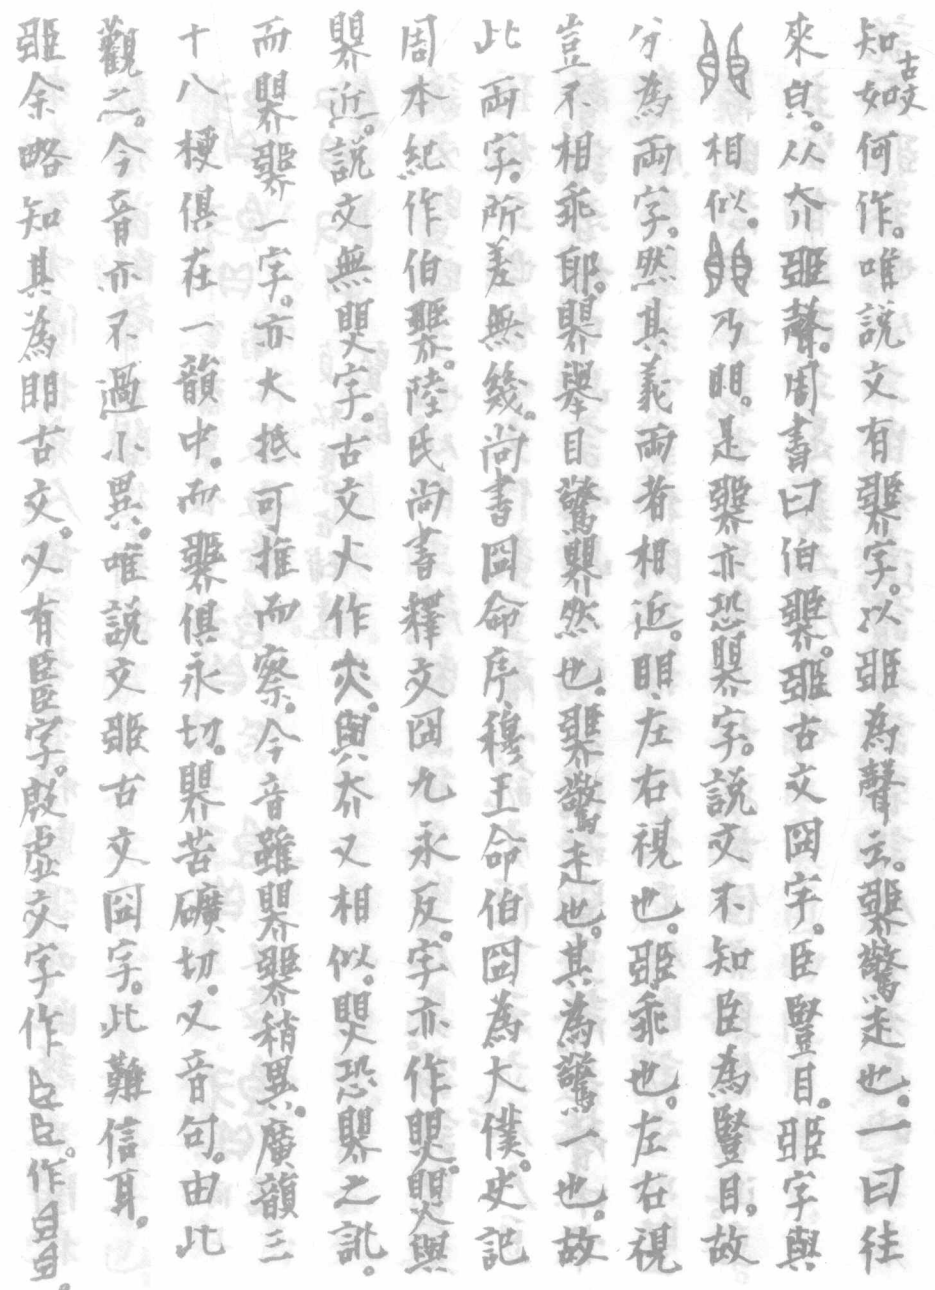 知古文如何作。唯說文有𦣩字。以𦣞為聲云。𦣩驚走也。一曰往
來皃。从夰𦣞聲。周書曰伯𦣩。𦣞古文囧字。臣豎目。𦣞字與
相似。乃䀠。是𦣩亦恐𥋓字。說文不知臣為豎目。故
分為兩字。然其義兩者相近。䀠、左右視也。𦣞乖也。左右視
豈不相乖耶。𥋓舉目驚𥋓然也。𦣩驚走也。其為驚一也。故
此兩字。所差無幾。尚書囧命序穆王命伯囧為大僕。史記
周本紀作伯𦣩。陸氏尚書釋文囧九永反。字亦作煛。煛與
𥋓近。說文無煛字。古文火作灻。與夰又相似。煛恐𥋓之訛。
而𥋓𦣩一字。亦大抵可推而察。今音雖𥋓𦣩稍異。廣韻三
十八梗俱在一韻中。而𦣩俱永切。𥋓苦礦切。又音句。由此
觀之。今音亦不過小異。唯說文𦣞古文囧字。此難信耳。
𦣞余略知其為䀠古文。又有臦字。殷虛文字作。作。